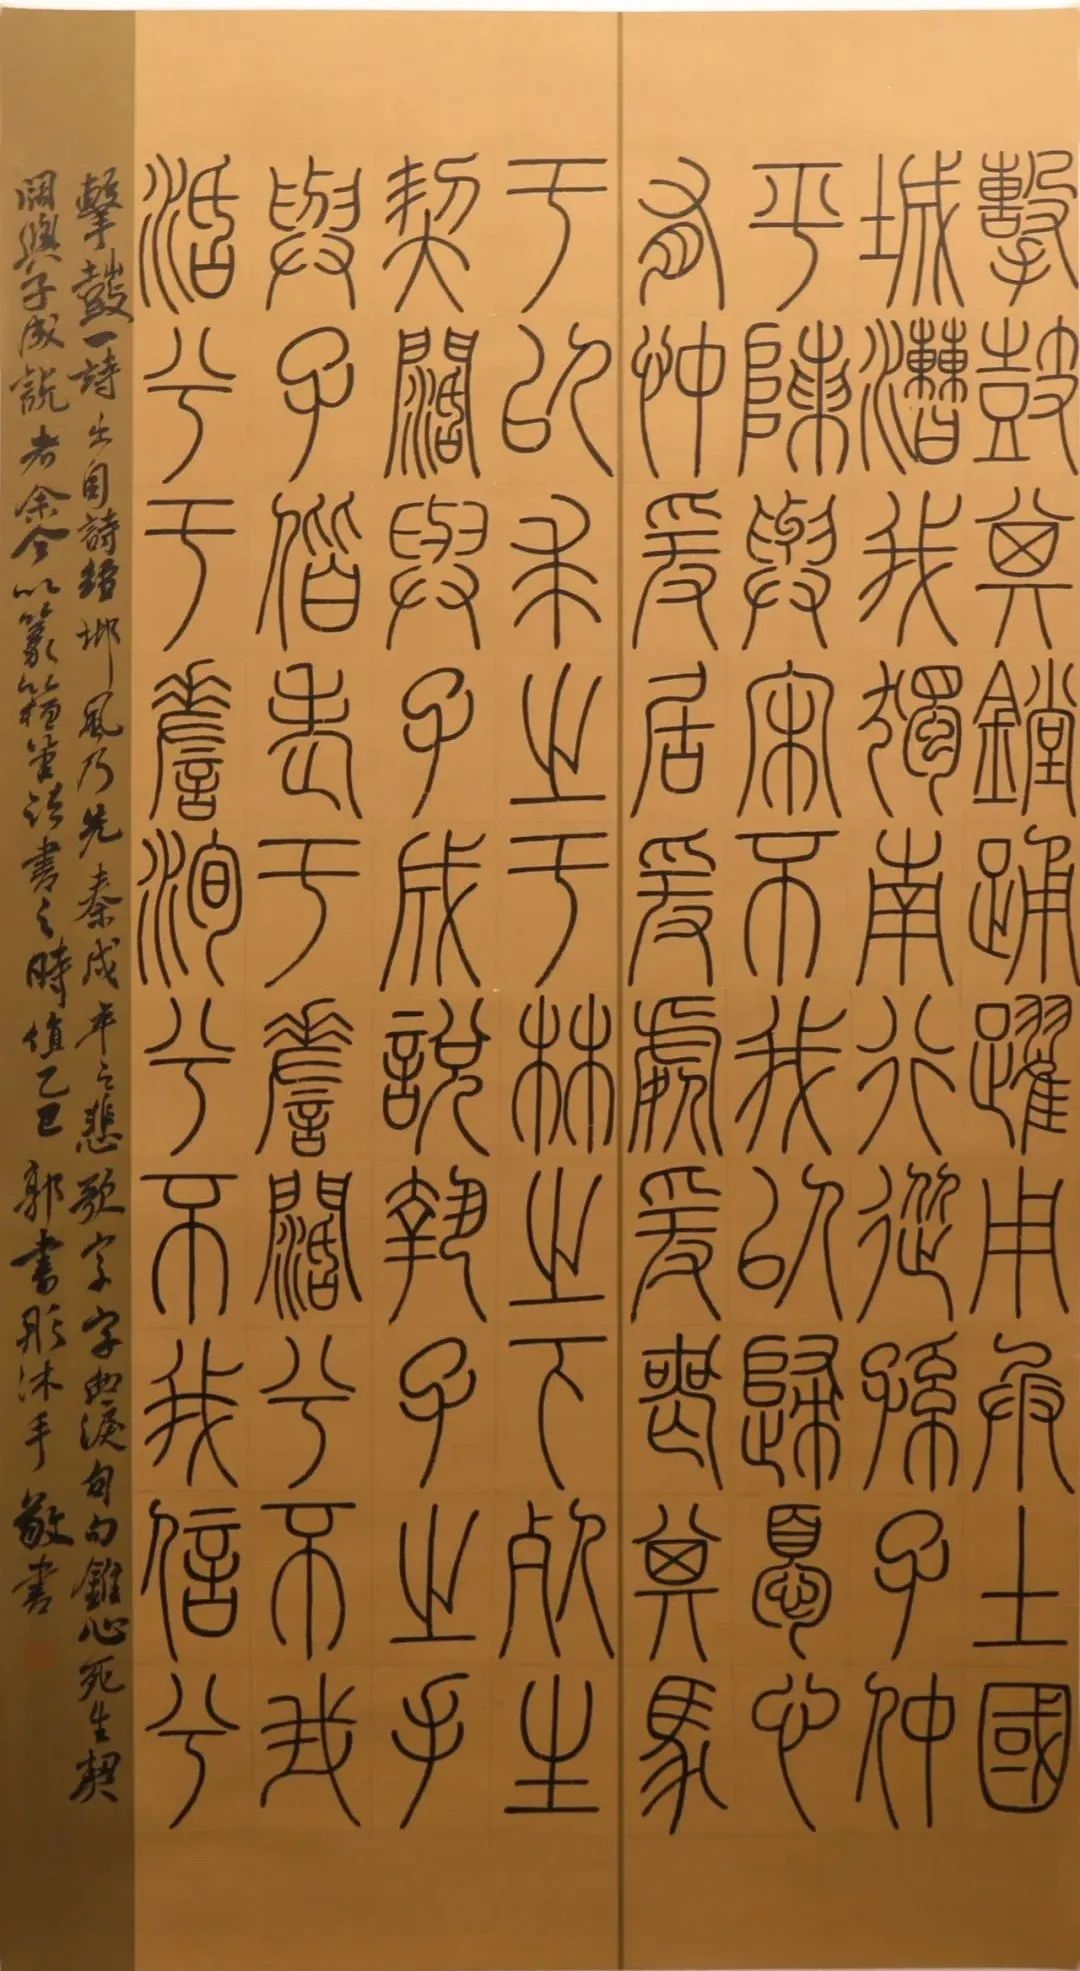 擊鼓其鏜踊躍用兵土國
城漕我獨南行從孫子仲
平陳與宋不我以歸憂心
有忡爰居爰處爰喪其馬
于以求之于林之下死生
契闊與子成說執子之手
與子偕老于嗟闊兮不我
活兮于嗟洵兮不我信兮
擊鼓一詩出自詩經邶風乃先秦戍卒之悲歌字字血淚句句錐心死生契
闊與子成說者余今以篆籀筆法書之時值乙巳郭書彤沐手敬書